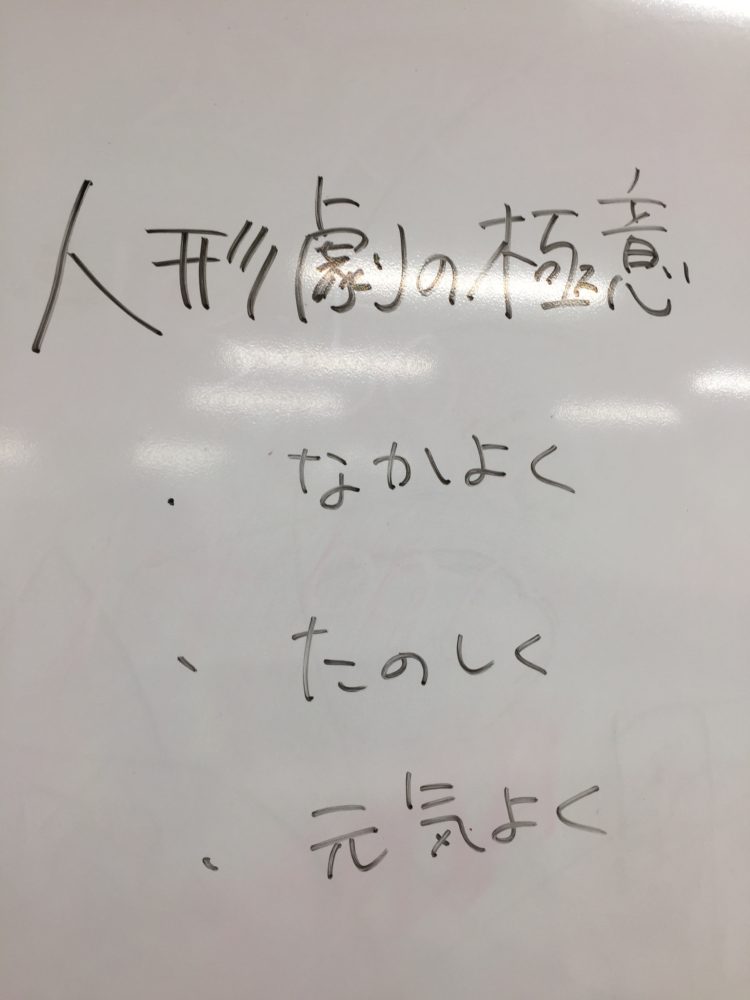 人形劇の極意
・ なかよく
・ たのしく
・ 元気よく